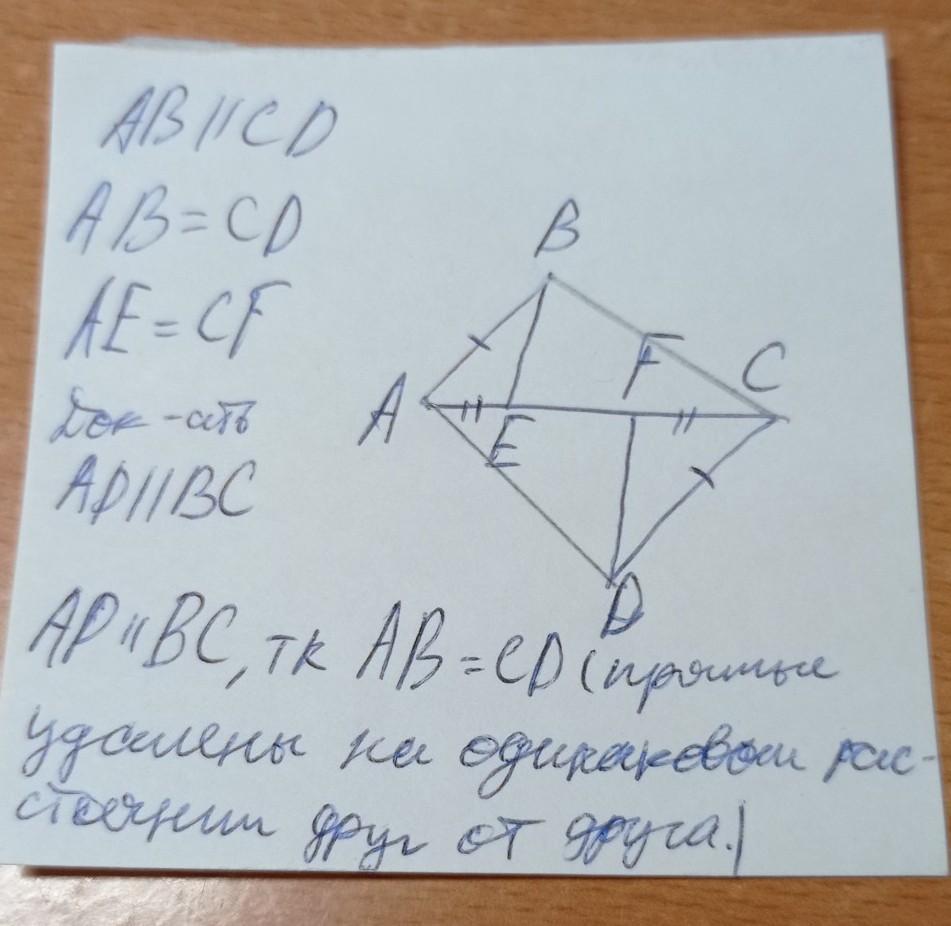 AB//CD
AB=CD
AE=CF
Док-ать
AD//BC
B
F
C
A
E
D
AD//BC, тк AB=CD (прямые
удалены на одинаковом рас-
стоянии друг от друга.)